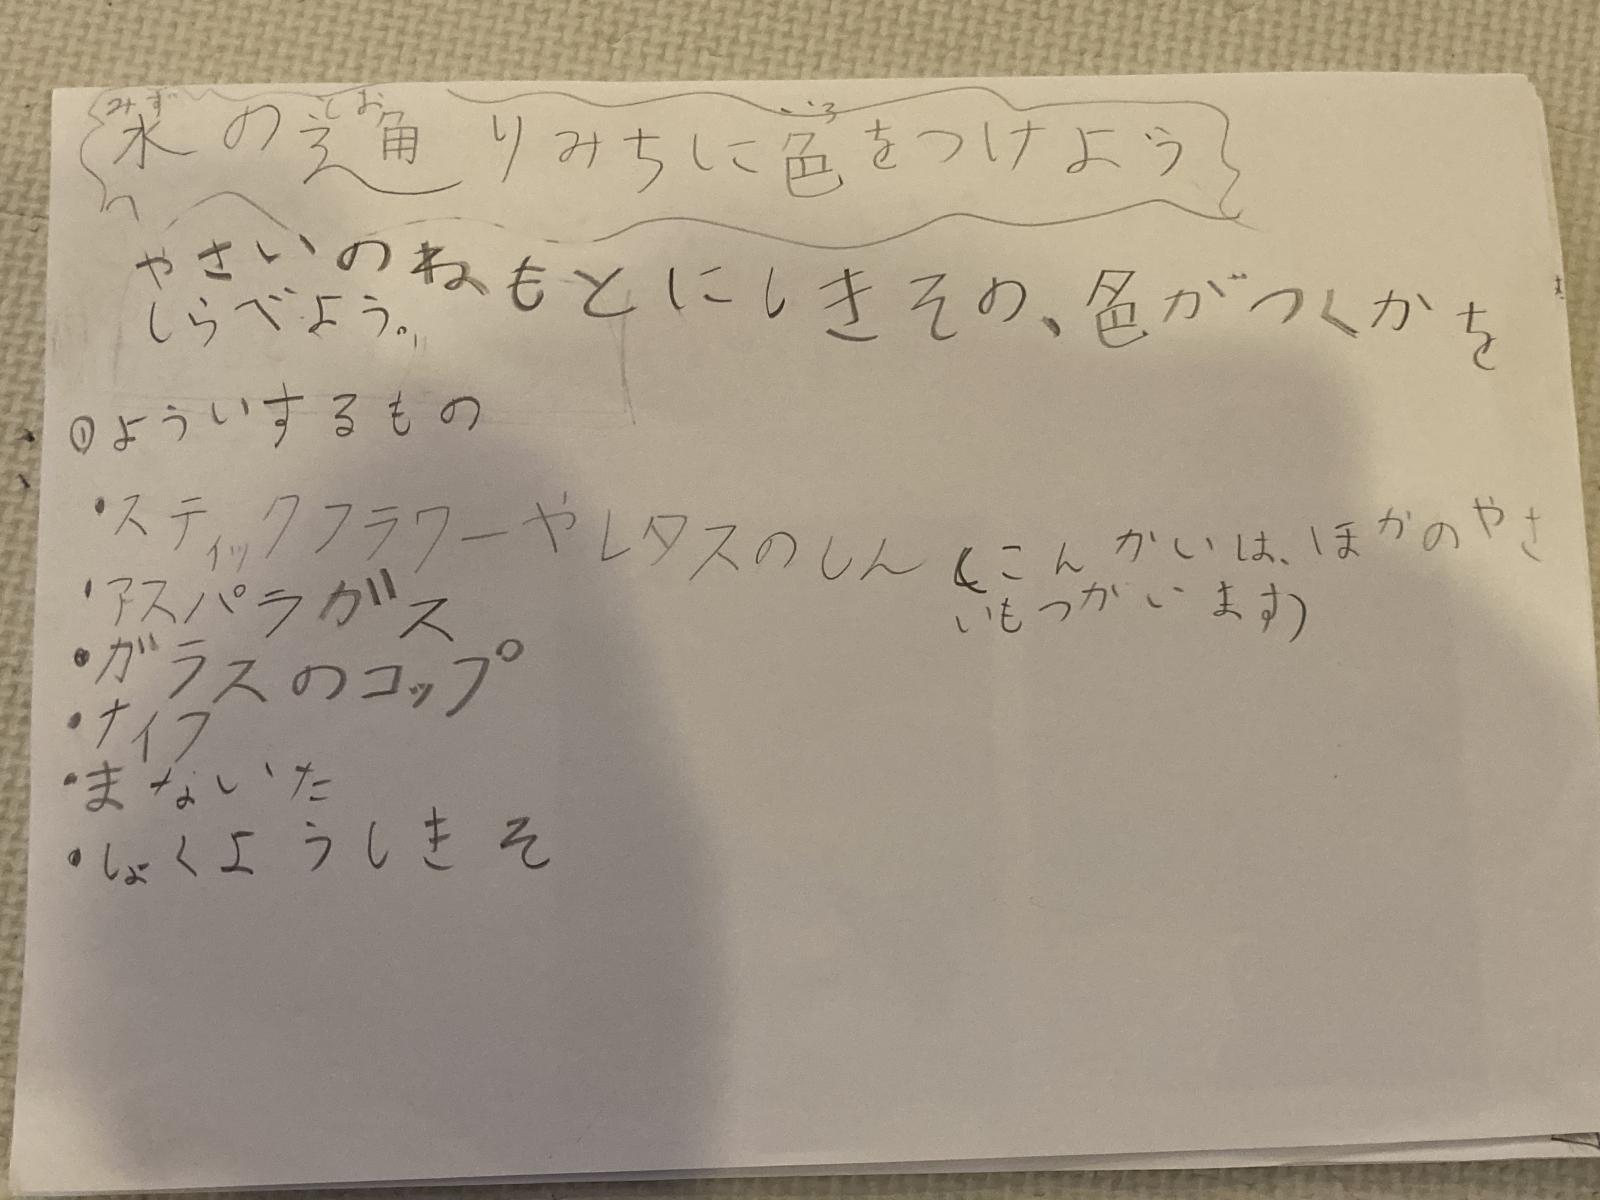 水の通りみちに色をつけよう
みず とお いろ
やさいのねもとにしきその、色がつくかを
しらべよう。
①よういするもの
・スティックフラワーやレタスのしん(こんかいは、ほかのやさ
いもつかいます)
・アスパラガス
・ガラスのコップ
・ナイフ
・まないた
・しょくようしきそ